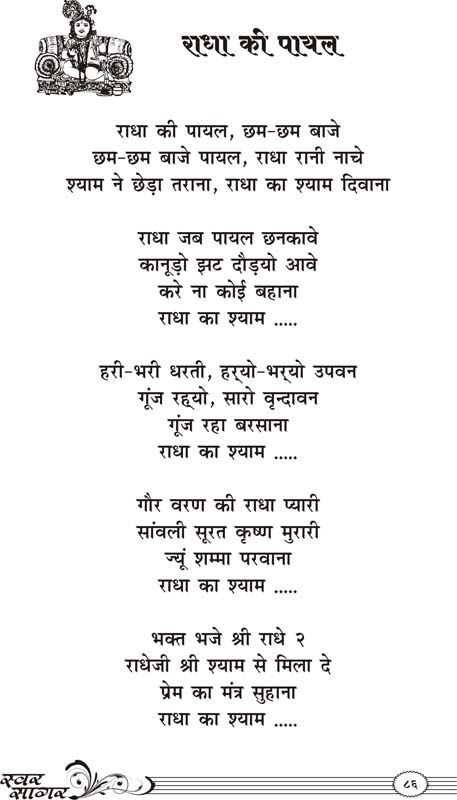 राधा की पायल
राधा की पायल, छम-छम बाजे
छम-छम बाजे पायल, राधा रानी नाचे
श्याम ने छेड़ा तराना, राधा का श्याम दिवाना
राधा जब पायल छनकावे
कानूड़ो झट दौड़यो आवे
करे ना कोई बहाना
राधा का श्याम .....
हरी-भरी धरती, हर्‌यो-भर्‌यो उपवन
गूंज रह्‌यो, सारो वृन्दावन
गूंज रहा बरसाना
राधा का श्याम .....
गौर वरण की राधा प्यारी
सांवली सूरत कृष्ण मुरारी
ज्यूं शम्मा परवाना
राधा का श्याम .....
भक्त भजे श्री राधे २
राधेजी श्री श्याम से मिला दे
प्रेम का मंत्र सुहाना
राधा का श्याम .....
स्वर
सागर
८६